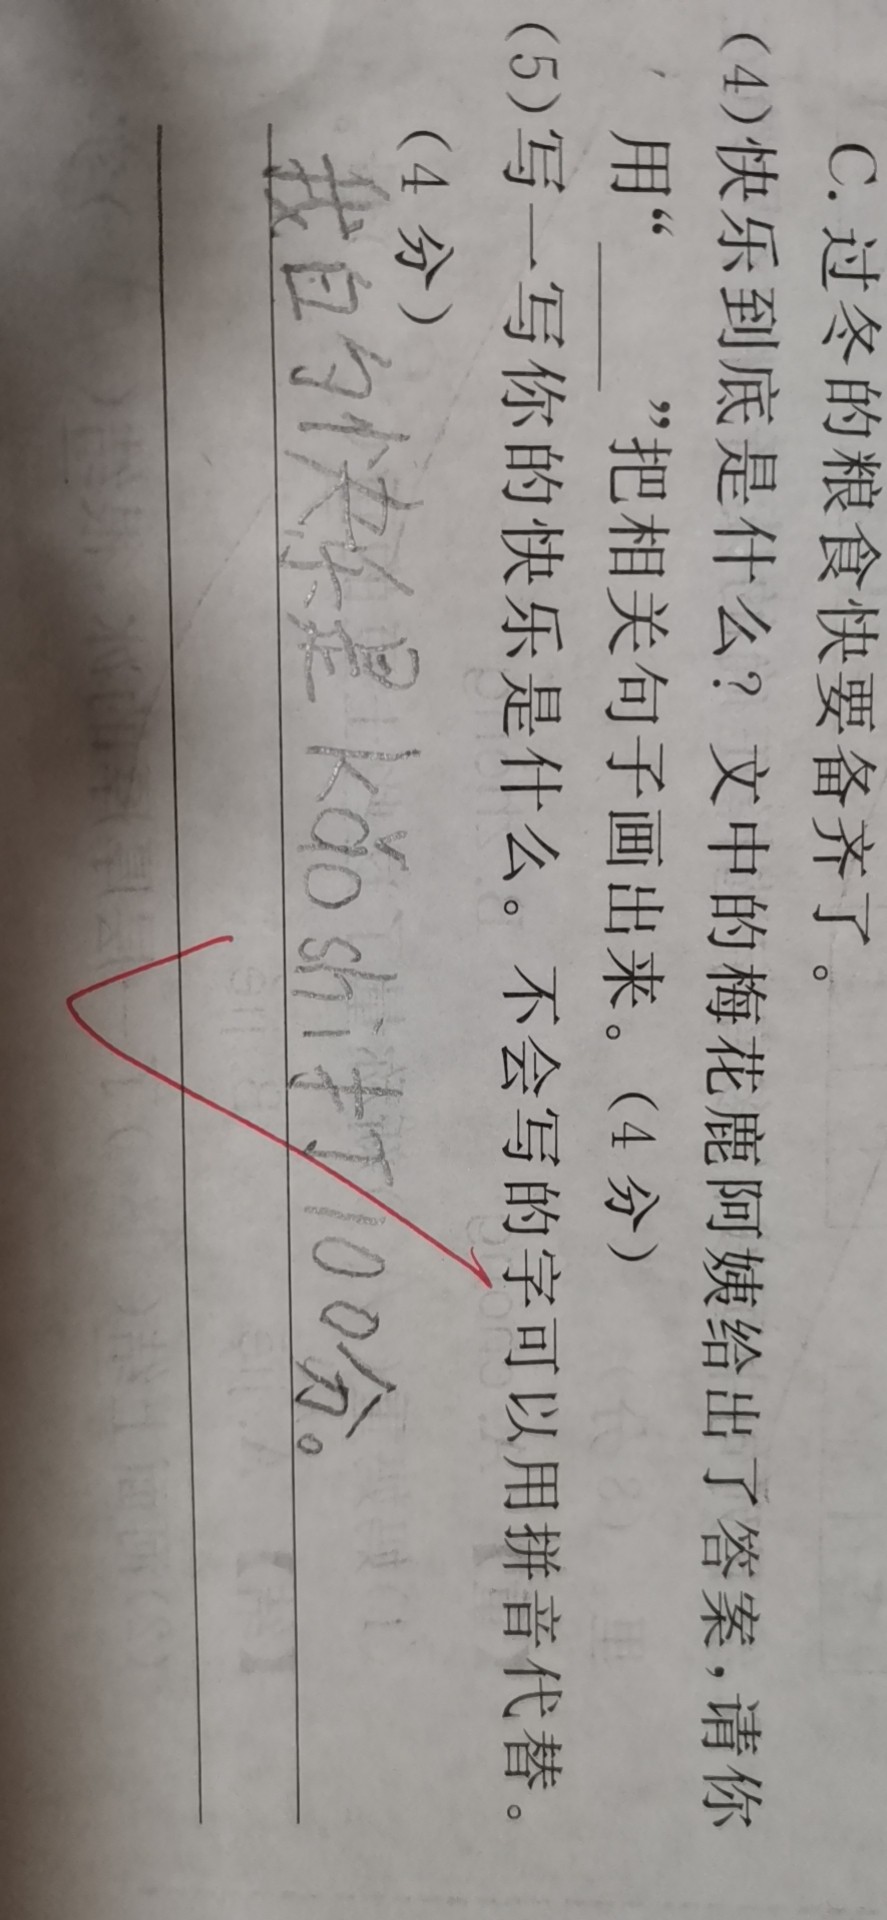 C. 过冬的粮食快要备齐了。
(4)快乐到底是什么？文中的梅花鹿阿姨给出了答案，请你
用“____”把相关句子画出来。(4分)
(5)写一写你的快乐是什么。不会写的字可以用拼音代替。
(4分)
我白勺快乐是kǎo shì 打100分。